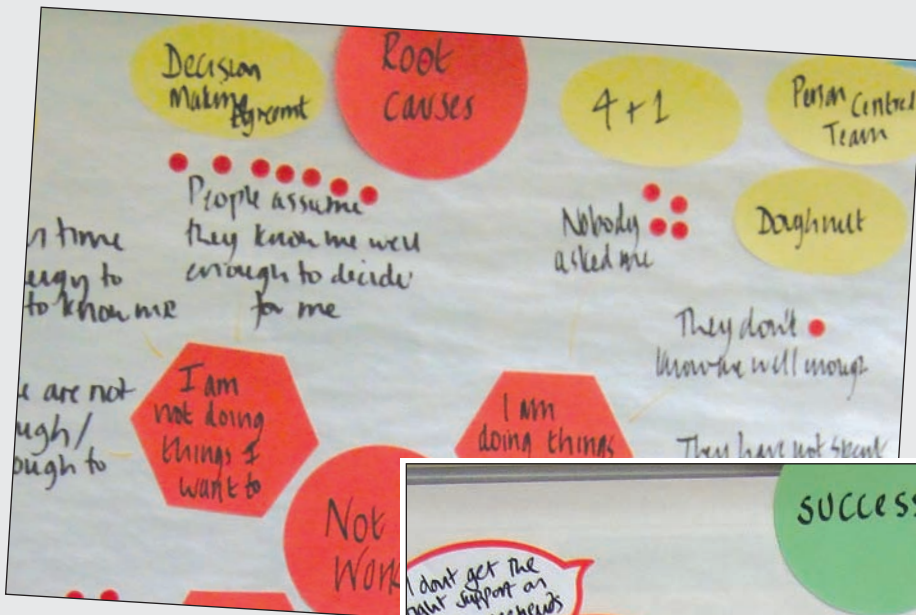 Decision
Making
Agreemt
Root
Causes
4 + 1
Person Centred
Team
Doughnut
People assume
they know me well
enough to decide
for me
Nobody
asked me
time
to
to know me
They don't
know me well enough
are not
to
I am
not doing
things I
want to
I am
doing things
They have not spent
Not
SUCCESS
I dont get the
support on